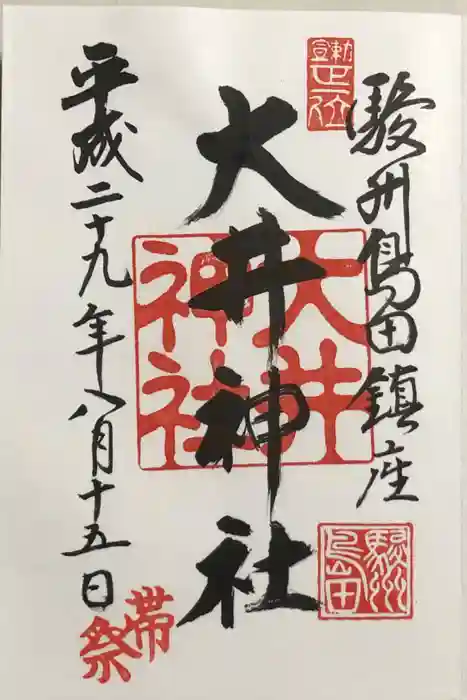 駿州島田鎮座
大井神社
平成二十九年八月十五日
大井神社
駿州島田
帯祭